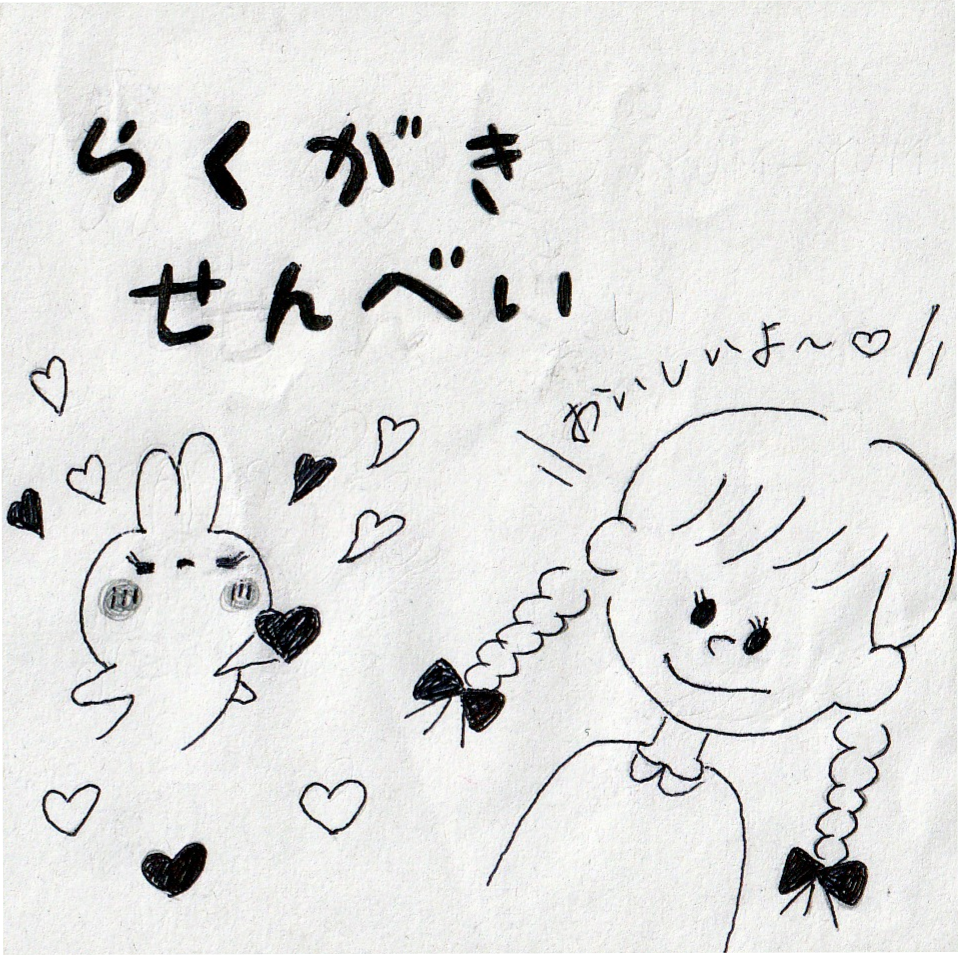 らくがき
せんべい
おいしいよ〜♡